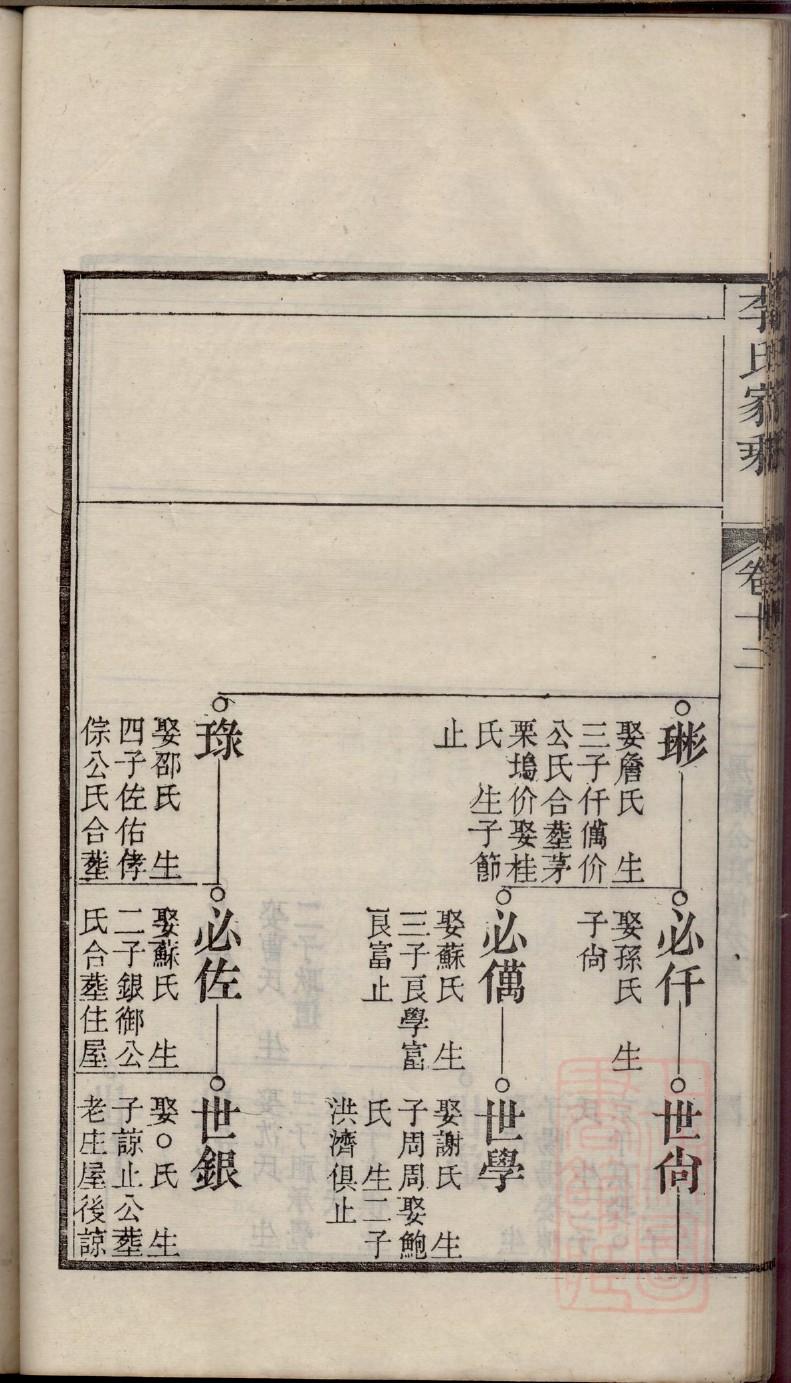 李氏家乘
卷十二
琳
娶詹氏 生
三子仟儀价
公氏合塟茅
栗塢价娶桂
氏 生子節
止
琭
娶邵氏 生
四子佐佑俦
倧公氏合塟
必仟
娶孫氏 生
子尙
必儀
娶蘇氏 生
三子良學富
良富止
必佐
娶蘇氏 生
二子銀御公
氏合塟住屋
世尙
世學
娶謝氏 生
子周周娶鮑
氏 生二子
洪濟俱止
世銀
娶○氏 生
子諒止公塟
老庄屋後諒